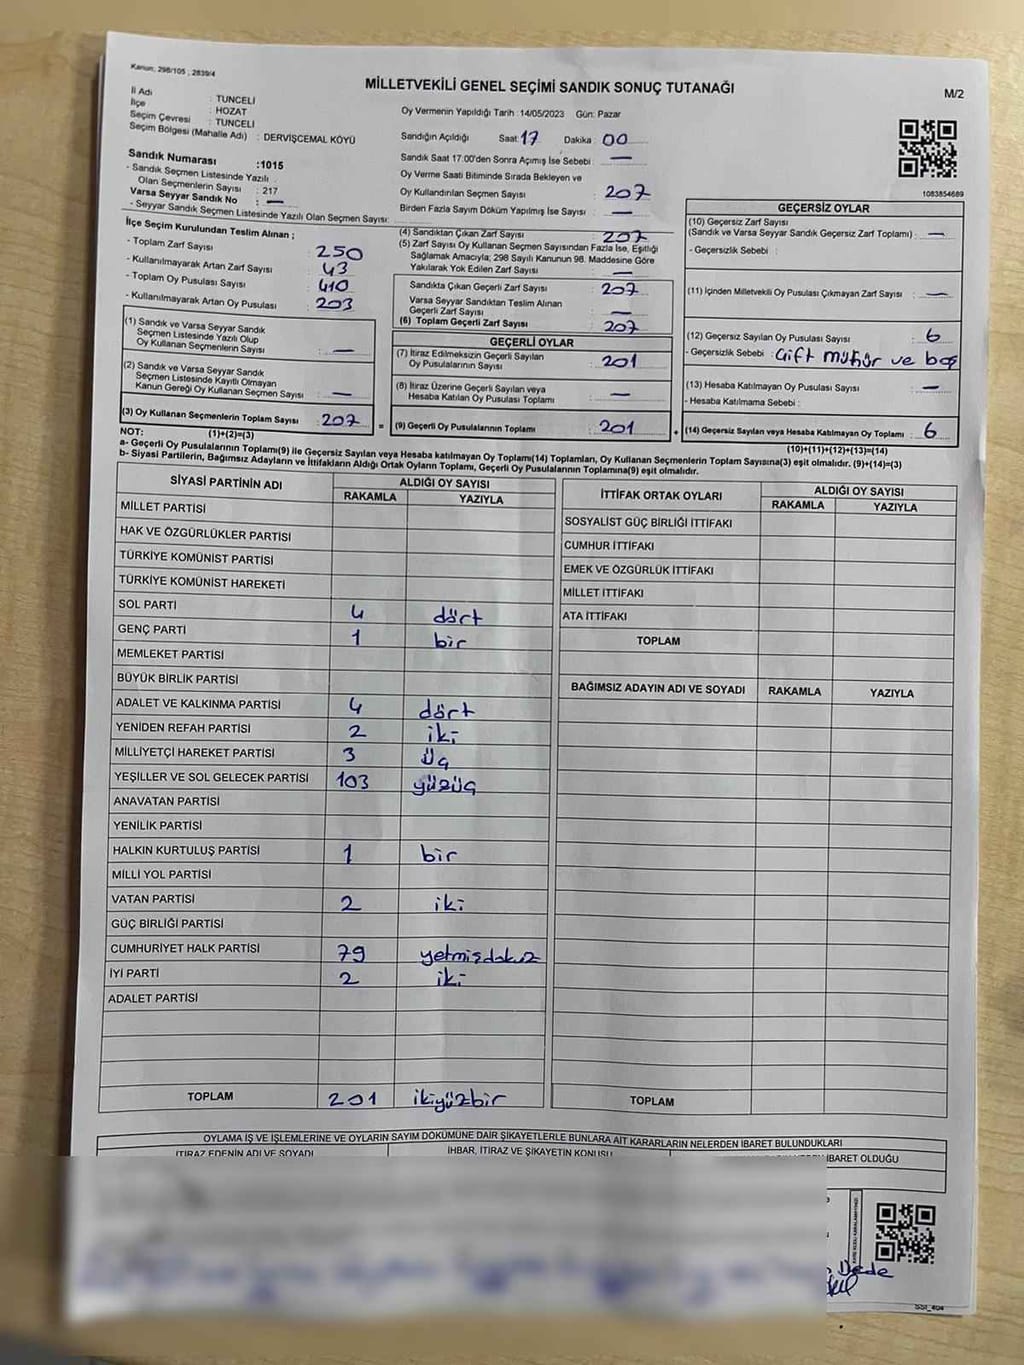 Kanun: 298/105 , 2839/4
MİLLETVEKİLİ GENEL SEÇİMİ SANDIK SONUÇ TUTANAĞI
M/2
İl Adı : TUNCELİ
İlçe : HOZAT
Seçim Çevresi : TUNCELİ
Seçim Bölgesi (Mahalle Adı) : DERVİŞCEMAL KÖYÜ
Sandık Numarası :1015
- Sandık Seçmen Listesinde Yazılı
Olan Seçmenlerin Sayısı : 217
Varsa Seyyar Sandık No : —
- Seyyar Sandık Seçmen Listesinde Yazılı Olan Seçmen Sayısı:
Oy Vermenin Yapıldığı Tarih :14/05/2023 Gün: Pazar
Sandığın Açıldığı Saat: 17 Dakika : 00
Sandık Saat 17:00'den Sonra Açımış İse Sebebi : —
Oy Verme Saati Bitiminde Sırada Bekleyen ve
Oy Kullandırılan Seçmen Sayısı : 207
Birden Fazla Sayım Döküm Yapılmış İse Sayısı : —
1083854689
İlçe Seçim Kurulundan Teslim Alınan ;
- Toplam Zarf Sayısı : 250
- Kullanılmayarak Artan Zarf Sayısı : 43
- Toplam Oy Pusulası Sayısı : 410
- Kullanılmayarak Artan Oy Pusulası : 203
(1) Sandık ve Varsa Seyyar Sandık
Seçmen Listesinde Yazılı Olup
Oy Kullanan Seçmenlerin Sayısı : —
(2) Sandık ve Varsa Seyyar Sandık
Seçmen Listesinde Kayıtlı Olmayan
Kanun Gereği Oy Kullanan Seçmen Sayısı : —
(3) Oy Kullanan Seçmenlerin Toplam Sayısı : 207
(4) Sandıktan Çıkan Zarf Sayısı : 207
(5) Zarf Sayısı Oy Kullanan Seçmen Sayısından Fazla İse, Eşitliği
Sağlamak Amacıyla; 298 Sayılı Kanunun 98. Maddesine Göre
Yakılarak Yok Edilen Zarf Sayısı : —
Sandıkta Çıkan Geçerli Zarf Sayısı : 207
Varsa Seyyar Sandıktan Teslim Alınan
Geçerli Zarf Sayısı : —
(6) Toplam Geçerli Zarf Sayısı : 207
GEÇERLİ OYLAR
(7) İtiraz Edilmeksizin Geçerli Sayılan
Oy Pusulalarının Sayısı : 201
(8) İtiraz Üzerine Geçerli Sayılan veya
Hesaba Katılan Oy Pusulası Toplamı : —
= (9) Geçerli Oy Pusulalarının Toplamı : 201
GEÇERSİZ OYLAR
(10) Geçersiz Zarf Sayısı
(Sandık ve Varsa Seyyar Sandık Geçersiz Zarf Toplamı) : —
- Geçersizlik Sebebi :
(11) İçinden Milletvekili Oy Pusulası Çıkmayan Zarf Sayısı : —
(12) Geçersiz Sayılan Oy Pusulası Sayısı : 6
- Geçersizlik Sebebi : Çift mühür ve boş
(13) Hesaba Katılmayan Oy Pusulası Sayısı : —
- Hesaba Katılmama Sebebi :
+ (14) Geçersiz Sayılan veya Hesaba Katılmayan Oy Toplamı : 6
NOT: (1)+(2)=(3)
(10)+(11)+(12)+(13)=(14)
a- Geçerli Oy Pusulalarının Toplamı(9) ile Geçersiz Sayılan veya Hesaba katılmayan Oy Toplamı(14) Toplamları, Oy Kullanan Seçmenlerin Toplam Sayısına(3) eşit olmalıdır. (9)+(14)=(3)
b- Siyasi Partilerin, Bağımsız Adayların ve İttifakların Aldığı Ortak Oyların Toplamı, Geçerli Oy Pusulalarının Toplamına(9) eşit olmalıdır.
SİYASİ PARTİNİN ADI ALDIĞI OY SAYISI
RAKAMLA YAZIYLA
MİLLET PARTİSİ
HAK VE ÖZGÜRLÜKLER PARTİSİ
TÜRKİYE KOMÜNİST PARTİSİ
TÜRKİYE KOMÜNİST HAREKETİ
SOL PARTİ 4 dört
GENÇ PARTİ 1 bir
MEMLEKET PARTİSİ
BÜYÜK BİRLİK PARTİSİ
ADALET VE KALKINMA PARTİSİ 4 dört
YENİDEN REFAH PARTİSİ 2 iki
MİLLİYETÇİ HAREKET PARTİSİ 3 üç
YEŞİLLER VE SOL GELECEK PARTİSİ 103 yüzüç
ANAVATAN PARTİSİ
YENİLİK PARTİSİ
HALKIN KURTULUŞ PARTİSİ 1 bir
MİLLİ YOL PARTİSİ
VATAN PARTİSİ 2 iki
GÜÇ BİRLİĞİ PARTİSİ
CUMHURİYET HALK PARTİSİ 79 yetmişdokuz
İYİ PARTİ 2 iki
ADALET PARTİSİ
TOPLAM 201 ikiyüzbir
İTTİFAK ORTAK OYLARI ALDIĞI OY SAYISI
RAKAMLA YAZIYLA
SOSYALİST GÜÇ BİRLİĞİ İTTİFAKI
CUMHUR İTTİFAKI
EMEK VE ÖZGÜRLÜK İTTİFAKI
MİLLET İTTİFAKI
ATA İTTİFAKI
TOPLAM
BAĞIMSIZ ADAYIN ADI VE SOYADI RAKAMLA YAZIYLA
TOPLAM
OYLAMA İŞ VE İŞLEMLERİNE VE OYLARIN SAYIM DÖKÜMÜNE DAİR ŞİKAYETLERLE BUNLARA AİT KARARLARIN NELERDEN İBARET BULUNDUKLARI
İTİRAZ EDENİN ADI VE SOYADI İHBAR, İTİRAZ VE ŞİKAYETİN KONUSU İBARET OLDUĞU
Dede
SSI_404